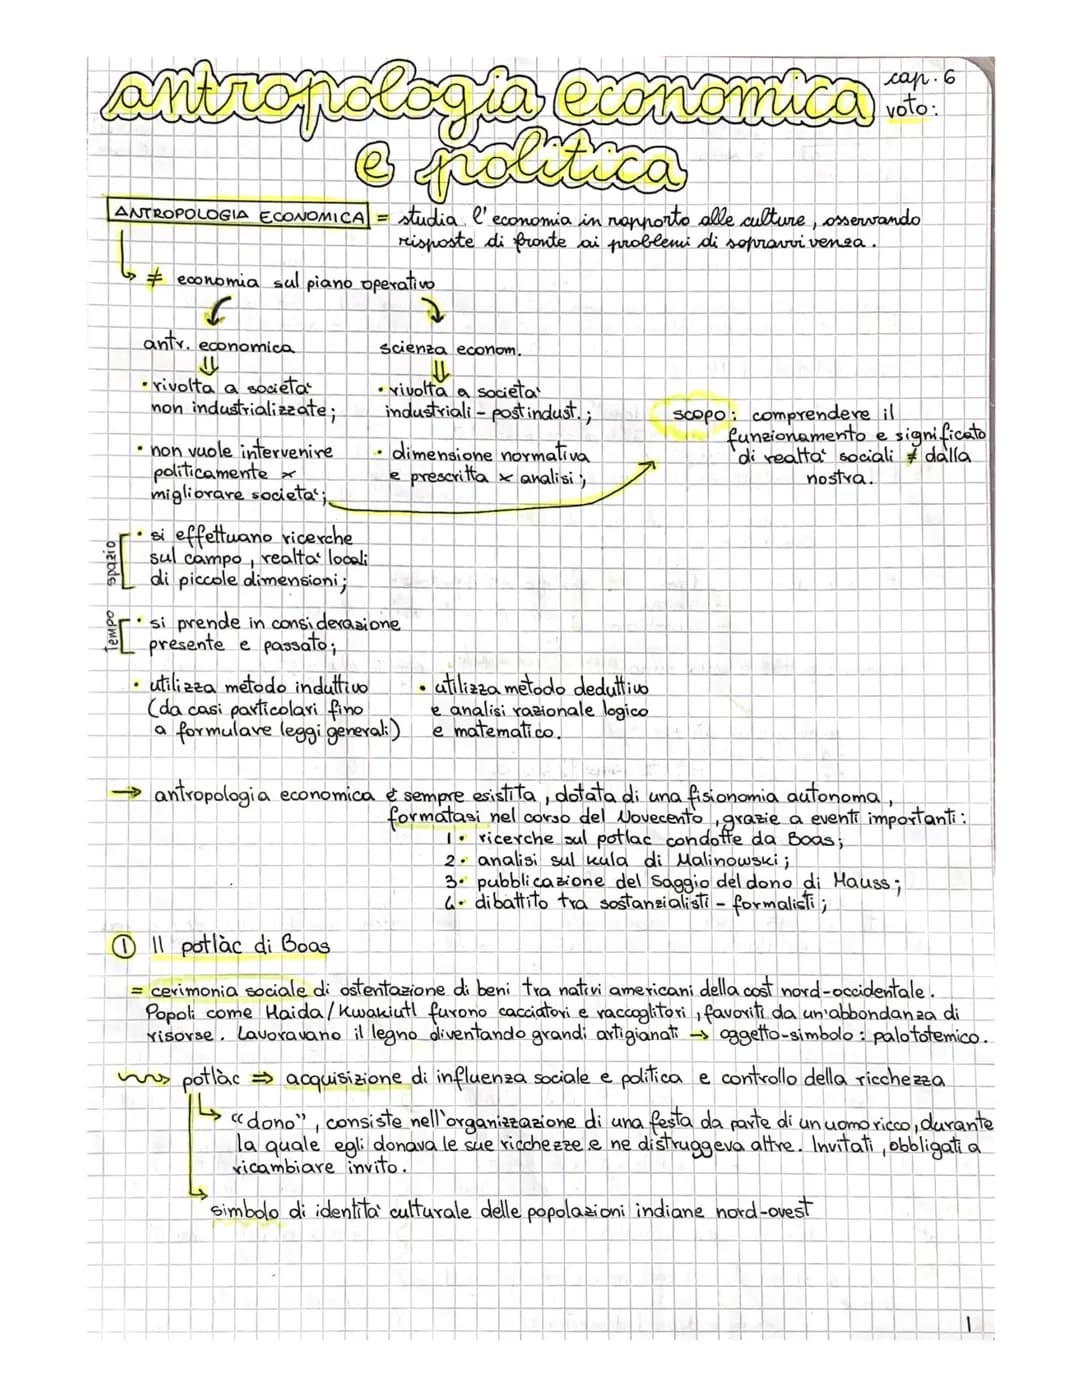 antropologia economica
cap. 6
voto:
e politica
ANTROPOLOGIA ECONOMICA = studia l'economia in rapporto alle culture, osservando
risposte di fronte ai problemi di sopravvivenza.
≠ economia sul piano operativo
antr. economica
⇓
• rivolta a società
non industrializzate;
• non vuole intervenire
politicamente x
migliorare società;
scienza econom.
⇓
• rivolta a società
industriali - postindust.;
• dimensione normativa
e prescritta x analisi;
scopo: comprendere il
funzionamento e significato
di realtà sociali ≠ dalla
nostra.
spazio
• si effettuano ricerche
sul campo, realtà locali
di piccole dimensioni;
tempo
• si prende in considerazione
presente e passato;
• utilizza metodo induttivo
(da casi particolari fino
a formulare leggi generali)
• utilizza metodo deduttivo
e analisi razionale logico
e matematico.
→ antropologia economica è sempre esistita, dotata di una fisionomia autonoma,
formatasi nel corso del Novecento, grazie a eventi importanti:
1• ricerche sul potlac condotte da Boas;
2• analisi sul kula di Malinowski;
3• pubblicazione del Saggio del dono di Mauss;
4• dibattito tra sostanzialisti - formalisti;
① Il potlàc di Boas
= cerimonia sociale di ostentazione di beni tra nativi americani della cost nord-occidentale.
Popoli come Haida/Kwakiutl furono cacciatori e raccoglitori, favoriti da un'abbondanza di
risorse. Lavoravano il legno diventando grandi artigianati → oggetto-simbolo: palo totemico.
potlàc ⇒ acquisizione di influenza sociale e politica e controllo della ricchezza
↳ "dono", consiste nell'organizzazione di una festa da parte di un uomo ricco, durante
la quale egli donava le sue ricchezze e ne distruggeva altre. Invitati, obbligati a
ricambiare invito.
↳ simbolo di identità culturale delle popolazioni indiane nord-ovest
1